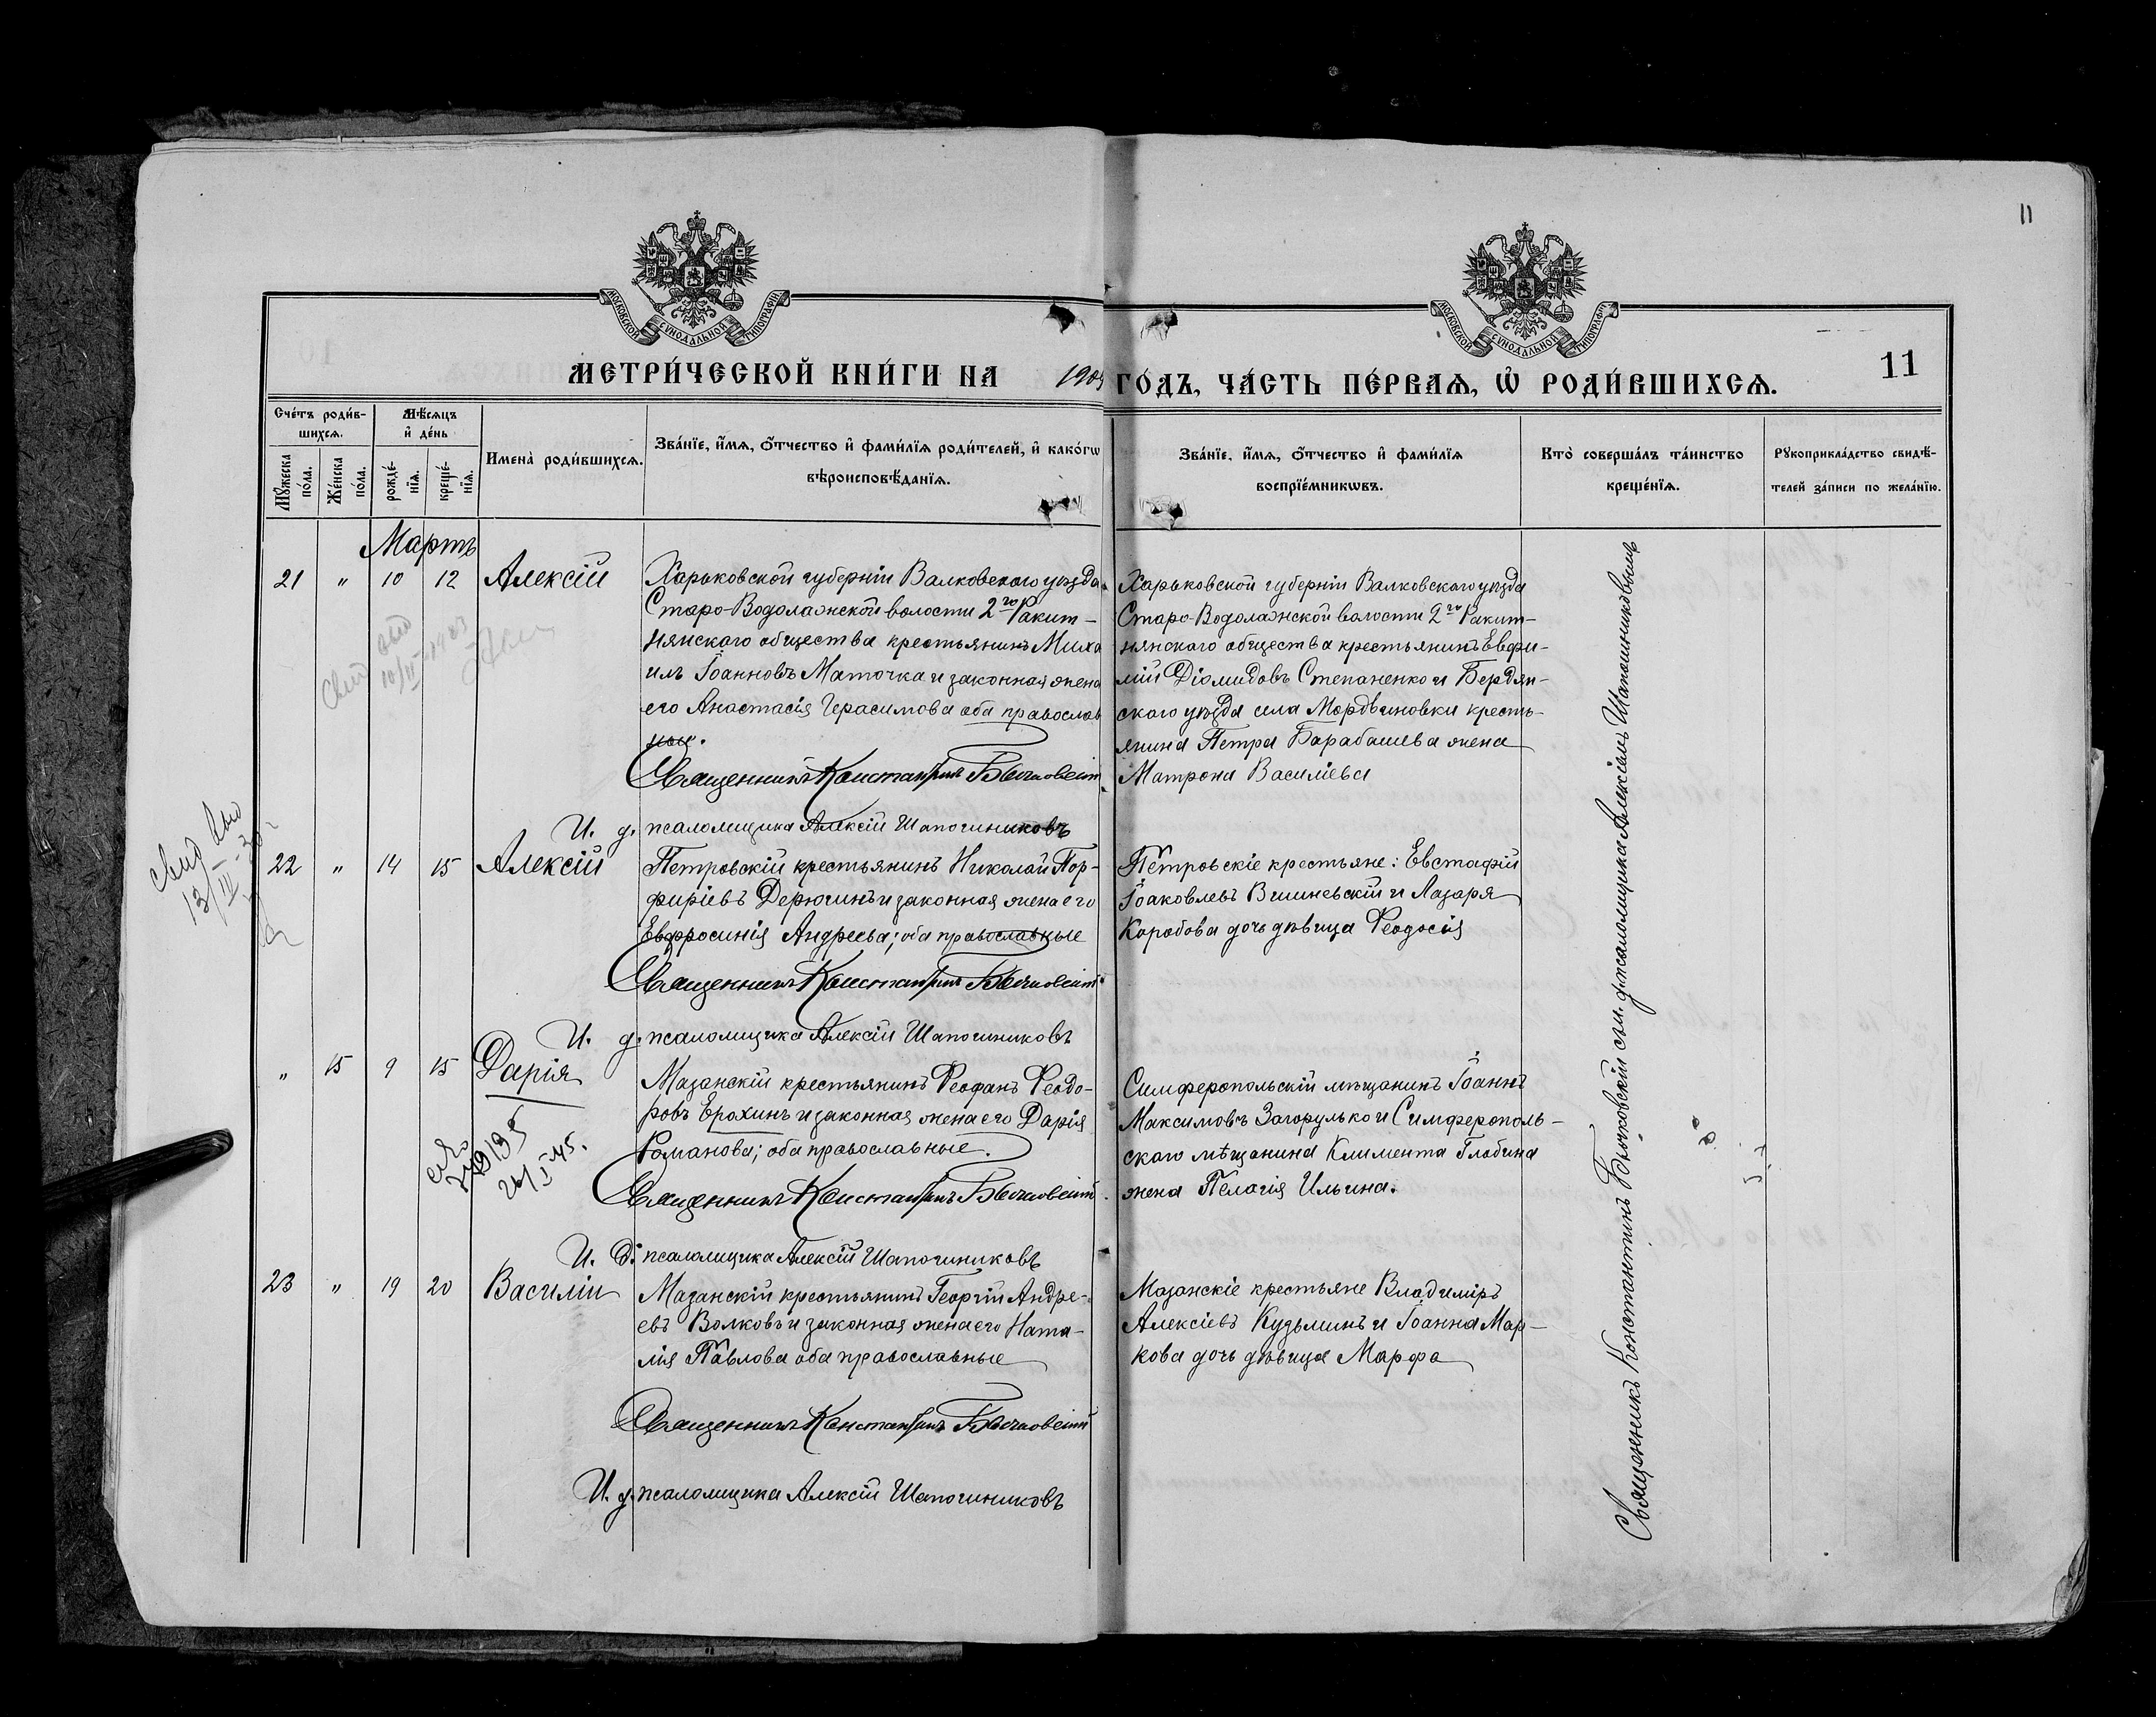 11
МОСКОВСКОЙ СѴНОДАЛЬНОЙ ТИПОГРАФІИ
МОСКОВСКОЙ СѴНОДАЛЬНОЙ ТИПОГРАФІИ
МЕТРИ́ЧЕСКОЙ КНИ́ГИ НА
ГО́ДЪ, ЧА́СТЬ ПЕ́РВАѦ, Ѡ РОДИ́ВШИХСѦ.
11
Сче́тъ роди́в-
шихсѧ.
Мѣ́сѧцъ
и҆ де́нь
Мꙋ́жеска
по́ла.
Же́нска
по́ла.
рожде́-
нїѧ.
креще́-
нїѧ.
Имена̀ роди́вшихсѧ.
Зва́нїе, и҆́мѧ, ѻ҆́тчество и҆ фами́лїѧ роди́телей, и҆ како́гѡ
вѣроисповѣ́данїѧ.
Зва́нїе, и҆́мѧ, ѻ҆́тчество и҆ фами́лїѧ
воспрїе́мникѡвъ.
Кто̀ соверша́лъ та́инство
креще́нїѧ.
Рꙋкоприкла́дство свидѣ́-
телей за́писи по жела́нїю.
Мартъ
21 " 10 12 Алексій
Харьковской губерніи Валковскаго уѣзда
Старо-Водолажской волости 2го Ракит-
нянскаго общества крестьянинъ Миха
илъ Іоанновъ Маточка и законная жена
его Анастасія Герасимова оба православ
ные.
Священникъ Константинъ Бычковскій
И. д. псаломщика Алексій Шапошниковъ
Харьковской губерніи Валковскаго уѣзда
Старо-Водолажской волости 2го Ракит-
нянскаго общества крестьянинъ Евфи-
мій Діомидовъ Степаненко и Бердян-
скаго уѣзда села Мордвиновки кресть-
янина Петра Барабашева жена
Матрона Василіева
22 " 14 15 Алексій
Петровскій крестьянинъ Николай Пор-
фиріевъ Дерюгинъ и законная жена его
Евфросинія Андреева; оба православные
Священникъ Константинъ Бычковскій
И. д. псаломщика Алексій Шапошниковъ
Петровскіе крестьяне: Евстафій
Іоаковлевъ Вишневскій и Лазаря
Коробова дочь дѣвица Ѳеодосія
" 15 9 15 Дарія
Мазанскій крестьянинъ Ѳеофанъ Ѳеодо-
ровъ Ерохинъ и законная жена его Дарія
Романова; оба православные.
Священникъ Константинъ Бычковскій
И. д. псаломщика Алексій Шапошниковъ
Симферопольскій мѣщанинъ Іоаннъ
Максимовъ Загорулько и Симферополь-
скаго мѣщанина Климента Глобина
жена Пелагія Ильина.
23 " 19 20 Василій
Мазанскій крестьянинъ Георгій Андре-
евъ Волковъ и законная жена его Ната-
лія Павлова оба православные
Священникъ Константинъ Бычковскій
И. д. псаломщика Алексій Шапошниковъ
Мазанскіе крестьяне Владиміръ
Алексіевъ Кузьминъ и Іоанна Мар-
кова дочь дѣвица Марфа
Священникъ Константинъ Бычковскій съ и. д. псаломщика Алексіемъ Шапошниковымъ